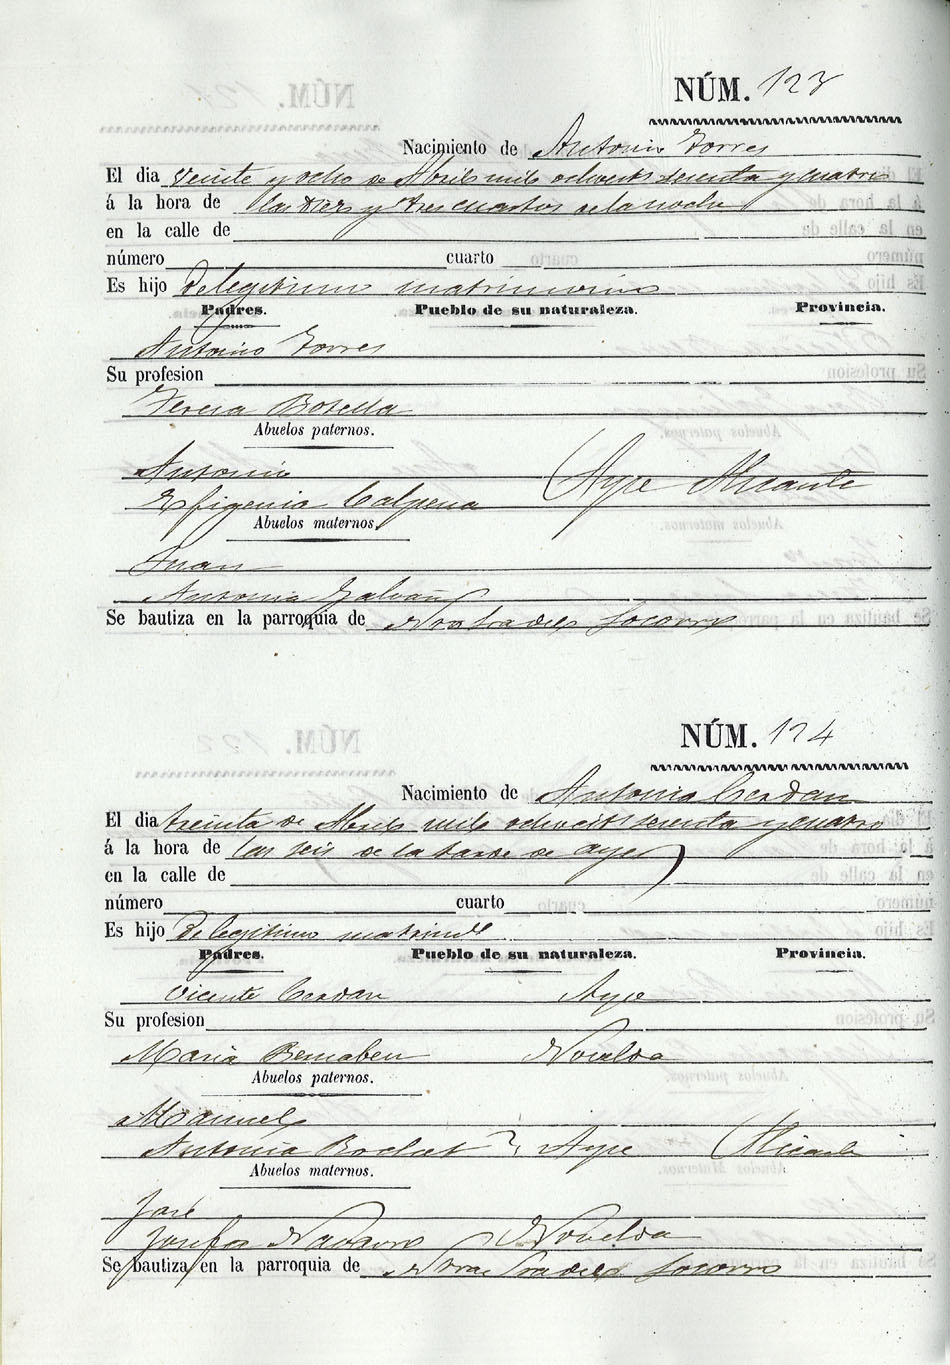 NÚM. 123
Nacimiento de Antonio Torres
El dia veinte y ocho de Abril mil ochocts sesenta y cuatro
á la hora de las diez y tres cuartos de la noche
en la calle de
número cuarto
Es hijo de legitimo matrimonio
Padres. Pueblo de su naturaleza. Provincia.
Antonio Torres
Su profesion
Teresa Botella
Abuelos paternos.
Antonio
Efigenia Calpena Aspe Alicante
Abuelos maternos.
Juan
Antonia Galvañ
Se bautiza en la parroquia de Ntra Sra del Socorro
NÚM. 124
Nacimiento de Antonia Cerdan
El dia treinta de Abril mil ochocts sesenta y cuatro
á la hora de las seis de la tarde de ayer
en la calle de
número cuarto
Es hijo de legitimo matrim
Padres. Pueblo de su naturaleza. Provincia.
Vicente Cerdan Aspe
Su profesion
Maria Bernabeu Novelda
Abuelos paternos.
Manuel
Antonia Aspe Alicante
Abuelos maternos.
José
Josefa Navarro Novelda
Se bautiza en la parroquia de Ntra Sra del Socorro